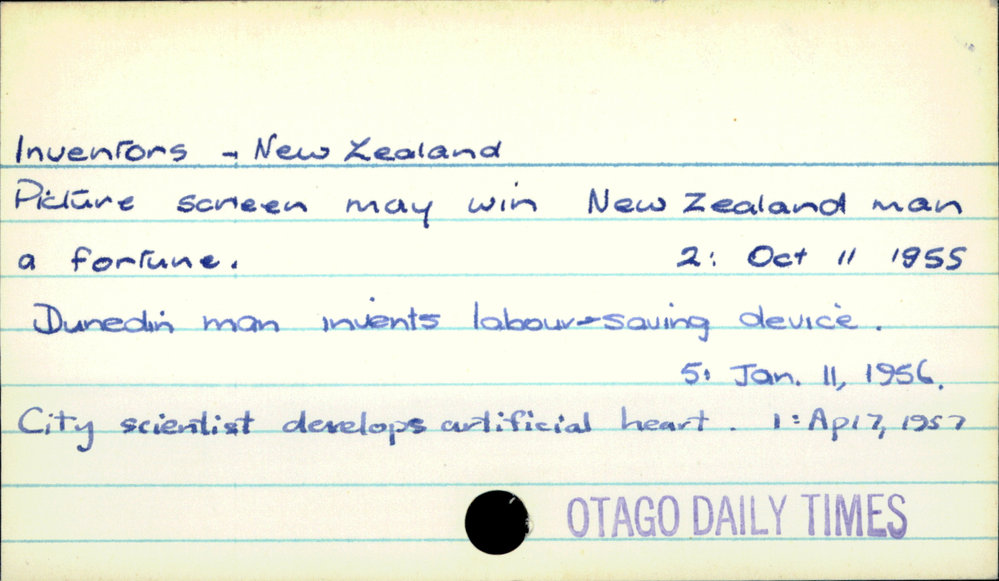 Inventors - New Zealand
Picture screen may win New Zealand man
a fortune. 2: Oct 11 1955
Dunedin man invents labour-saving device.
5: Jan. 11, 1956.
City scientist develops artificial heart. 1: Apr 7, 1957
OTAGO DAILY TIMES